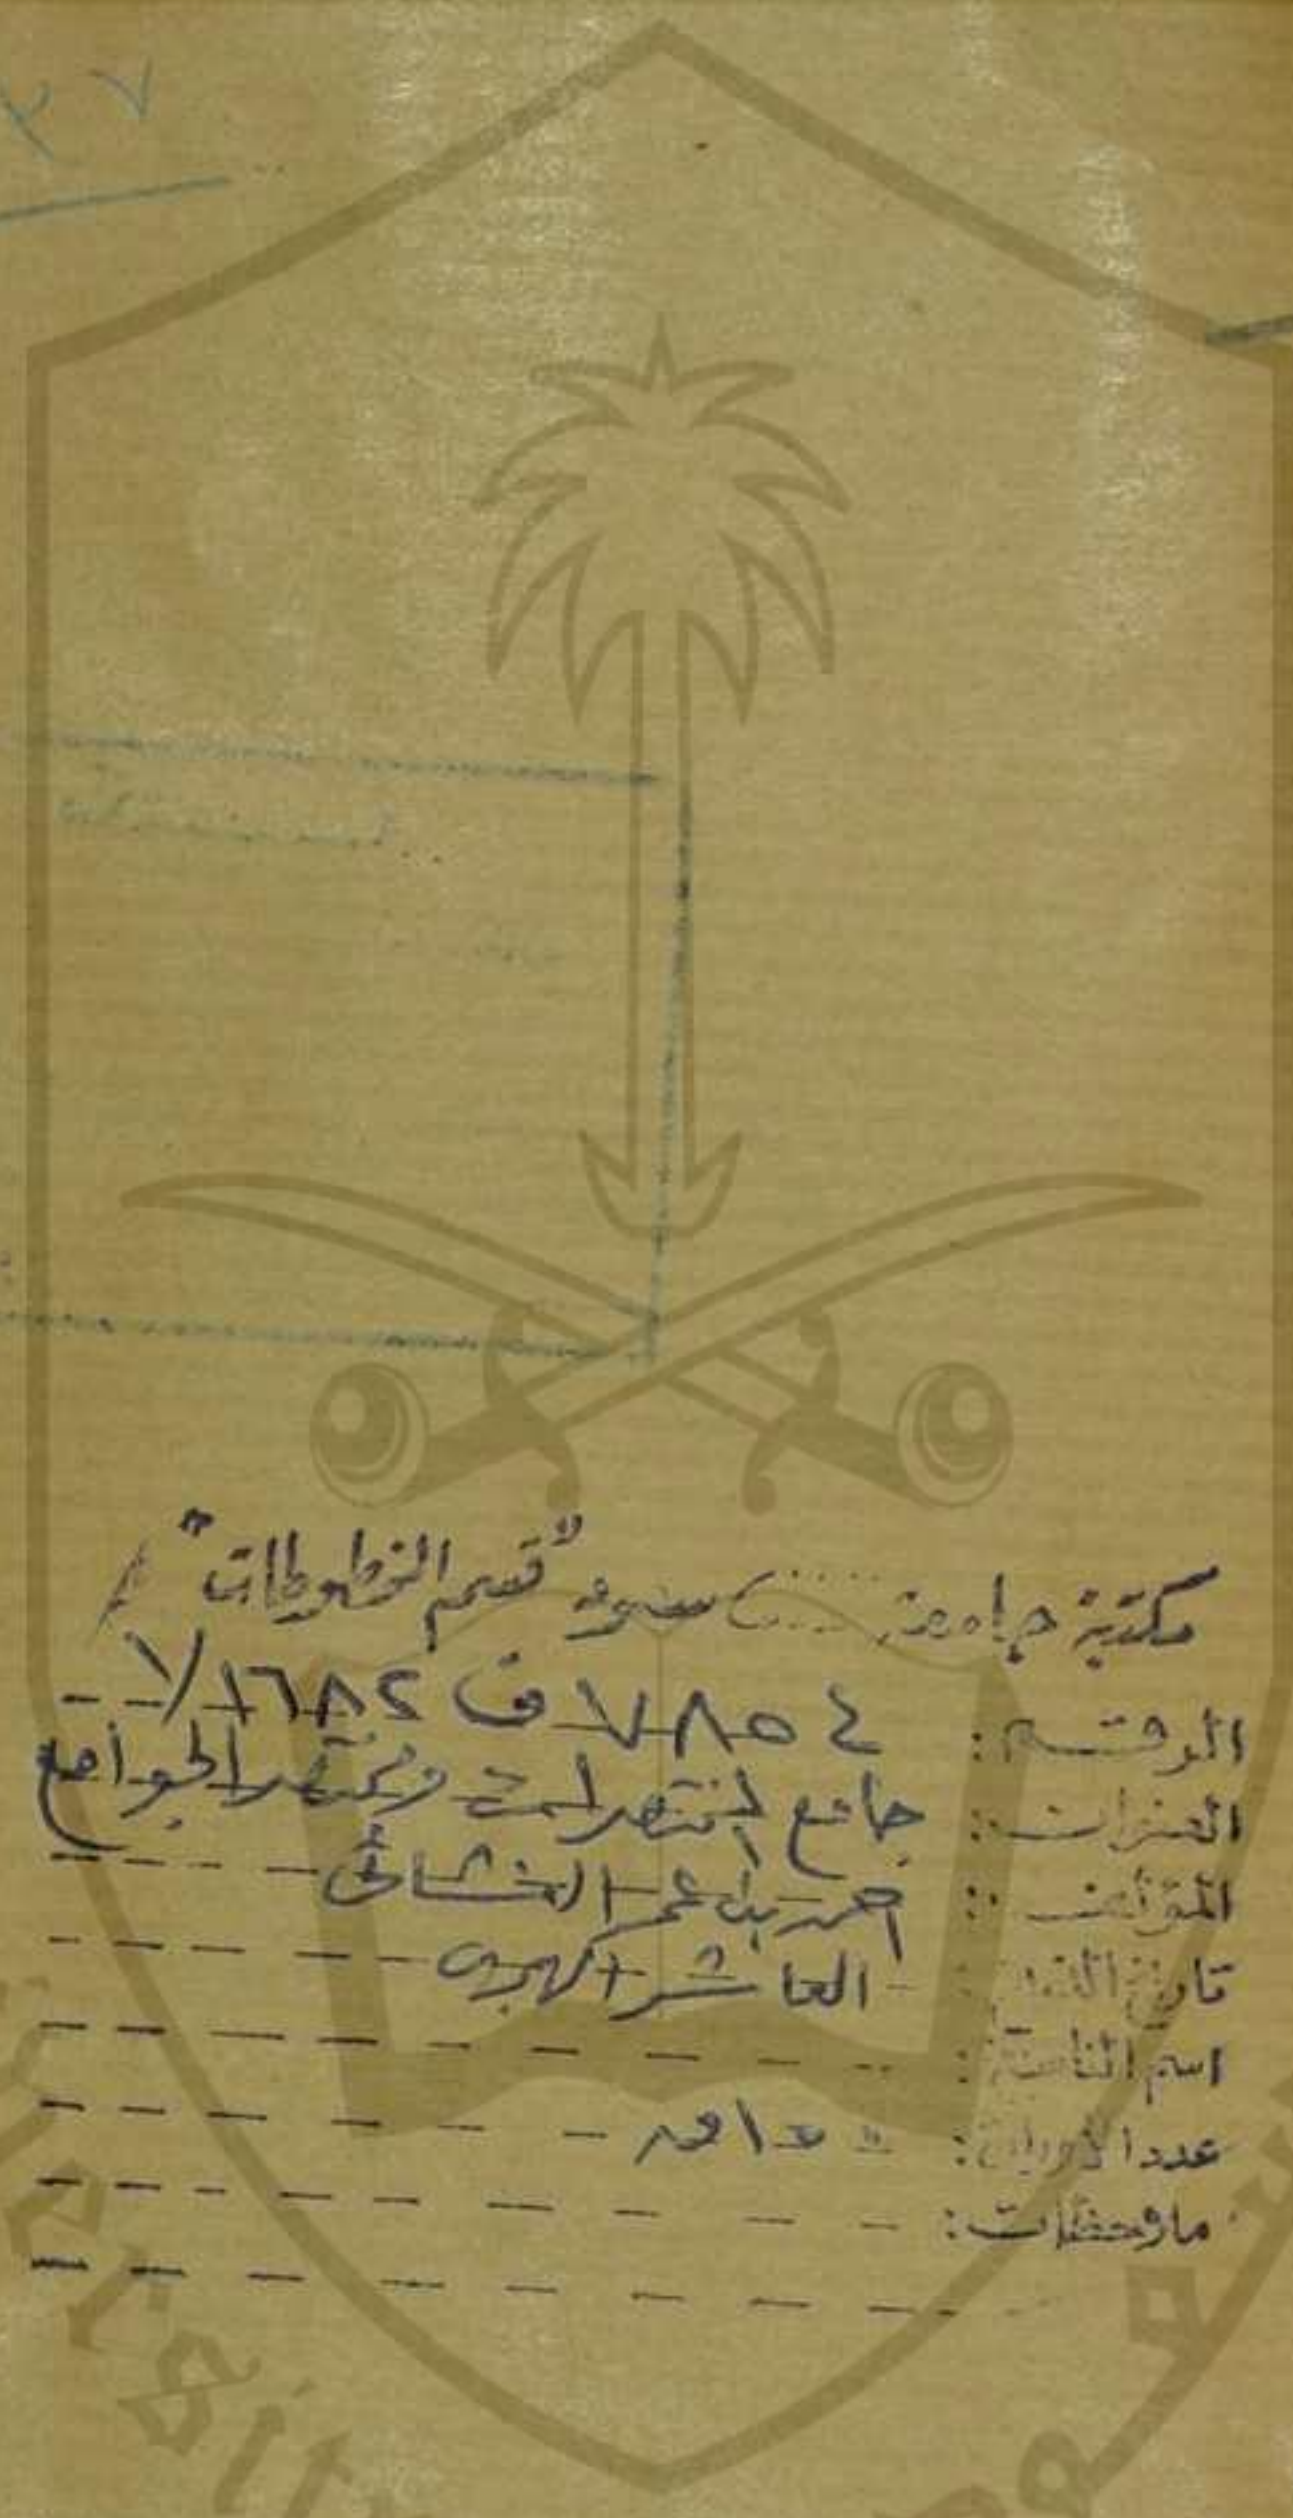 ٢٧
مكتبة جامعة سعود "قسم المخطوطات"
الرقم: ٧٨٥٤ ف ١٦٨٢/٧
العنوان: جامع المختصرات ومختصر الجوامع
المؤلف: احمد بن عمر النشائي
تاريخ النسخ: العاشر الهجري
اسم الناسخ:
عدد الأوراق:
ملاحظات: